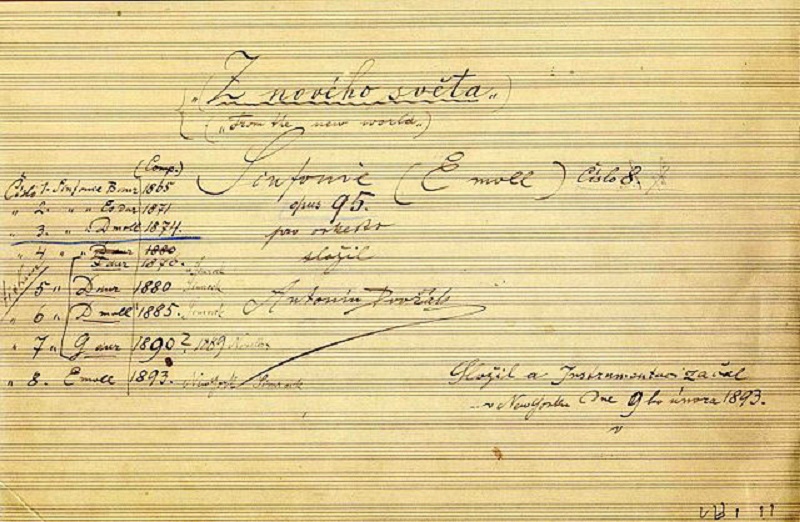 „Z nového světa„
(„From the new world„)
Sinfonie (E moll) Číslo 8.
opus 95.
pro orkestr
složil
Antonín Dvořák
(Comp.)
Číslo 1. Sinfonie B dur 1865
„ 2. „ „ Es dur 1871
„ 3. „ „ D moll 1874.
„ 4 „ „ D dur 1880
F dur 1870.
„ 5 „ D dur 1880 Simrock
„ 6 „ D moll 1885. Simrock
„ 7 „ G dur 1890? 1889 Novello
„ 8. E moll 1893. New York Simrock
Složil a Instrumentaci začal
v New Yorku Dne 9ho února 1893.